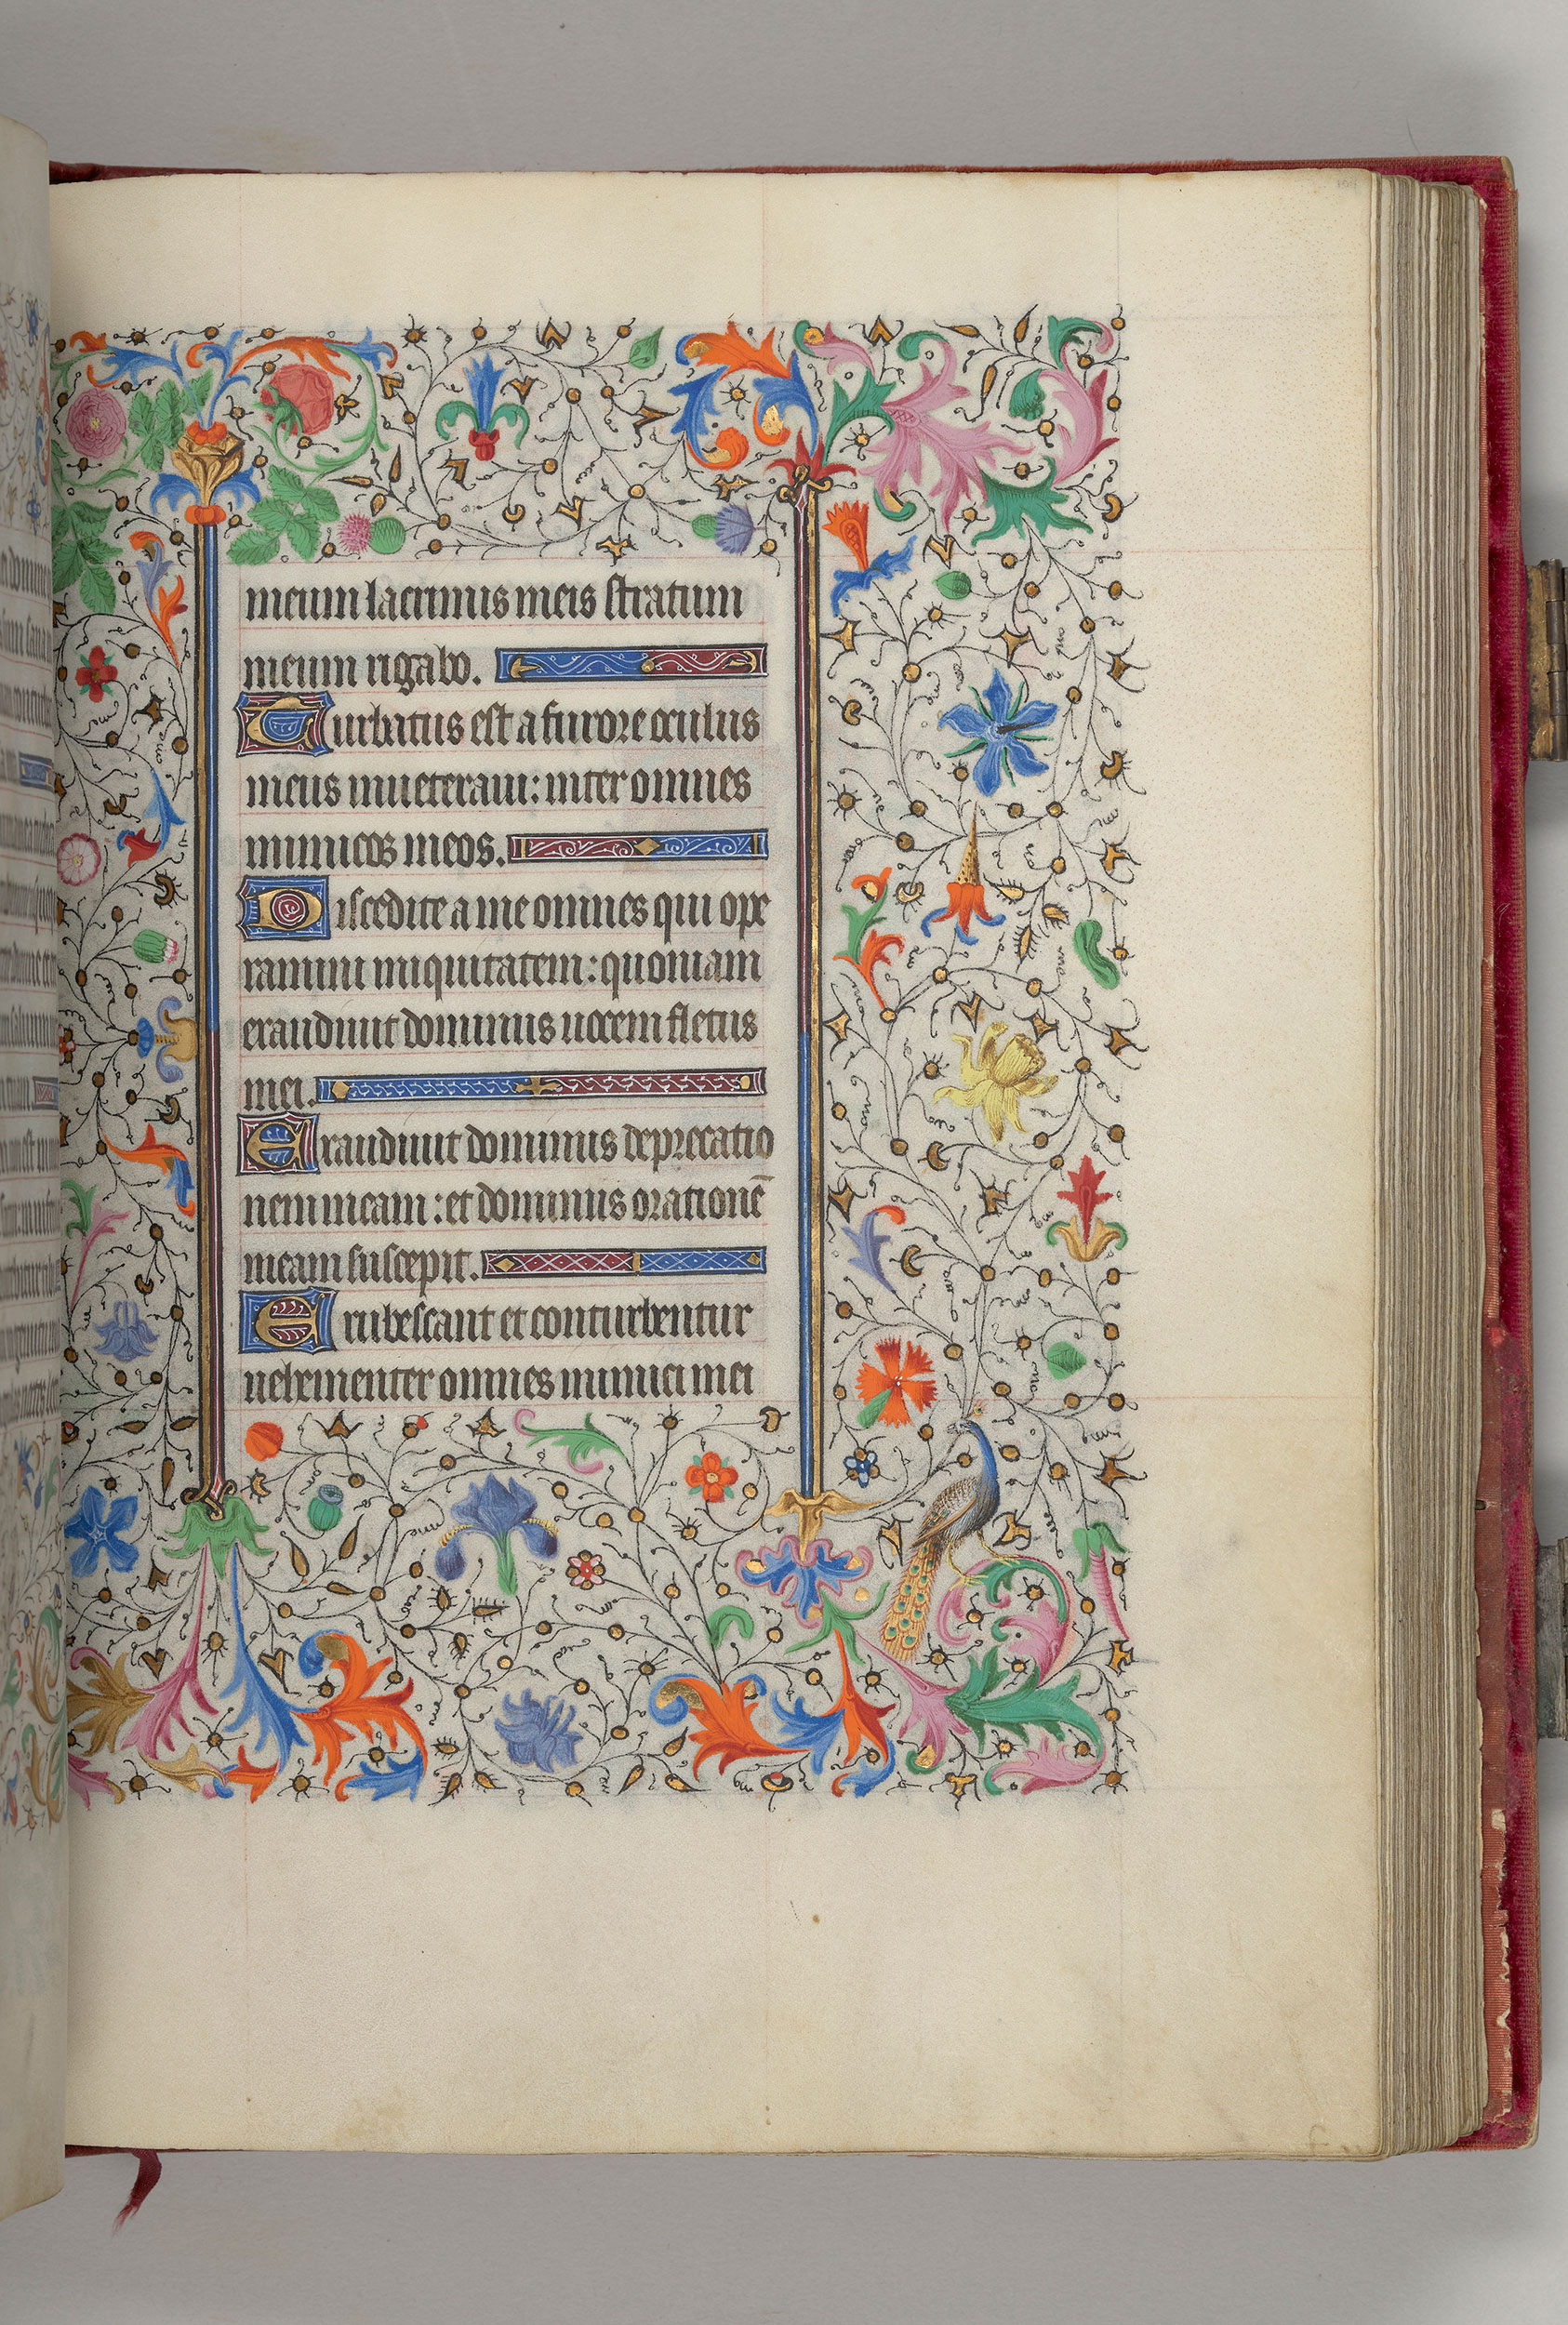 meum lacrimis meis stratum
meum rigabo.
Turbatus est a furore oculus
meus inueteraui: inter omnes
inimicos meos.
Discedite a me omnes qui ope
ramini iniquitatem: quoniam
exaudiuit dominus uocem fletus
mei.
Exaudiuit dominus deprecatio
nem meam: et dominus orationē
meam suscepit.
Erubescant et conturbentur
uehementer omnes inimici mei